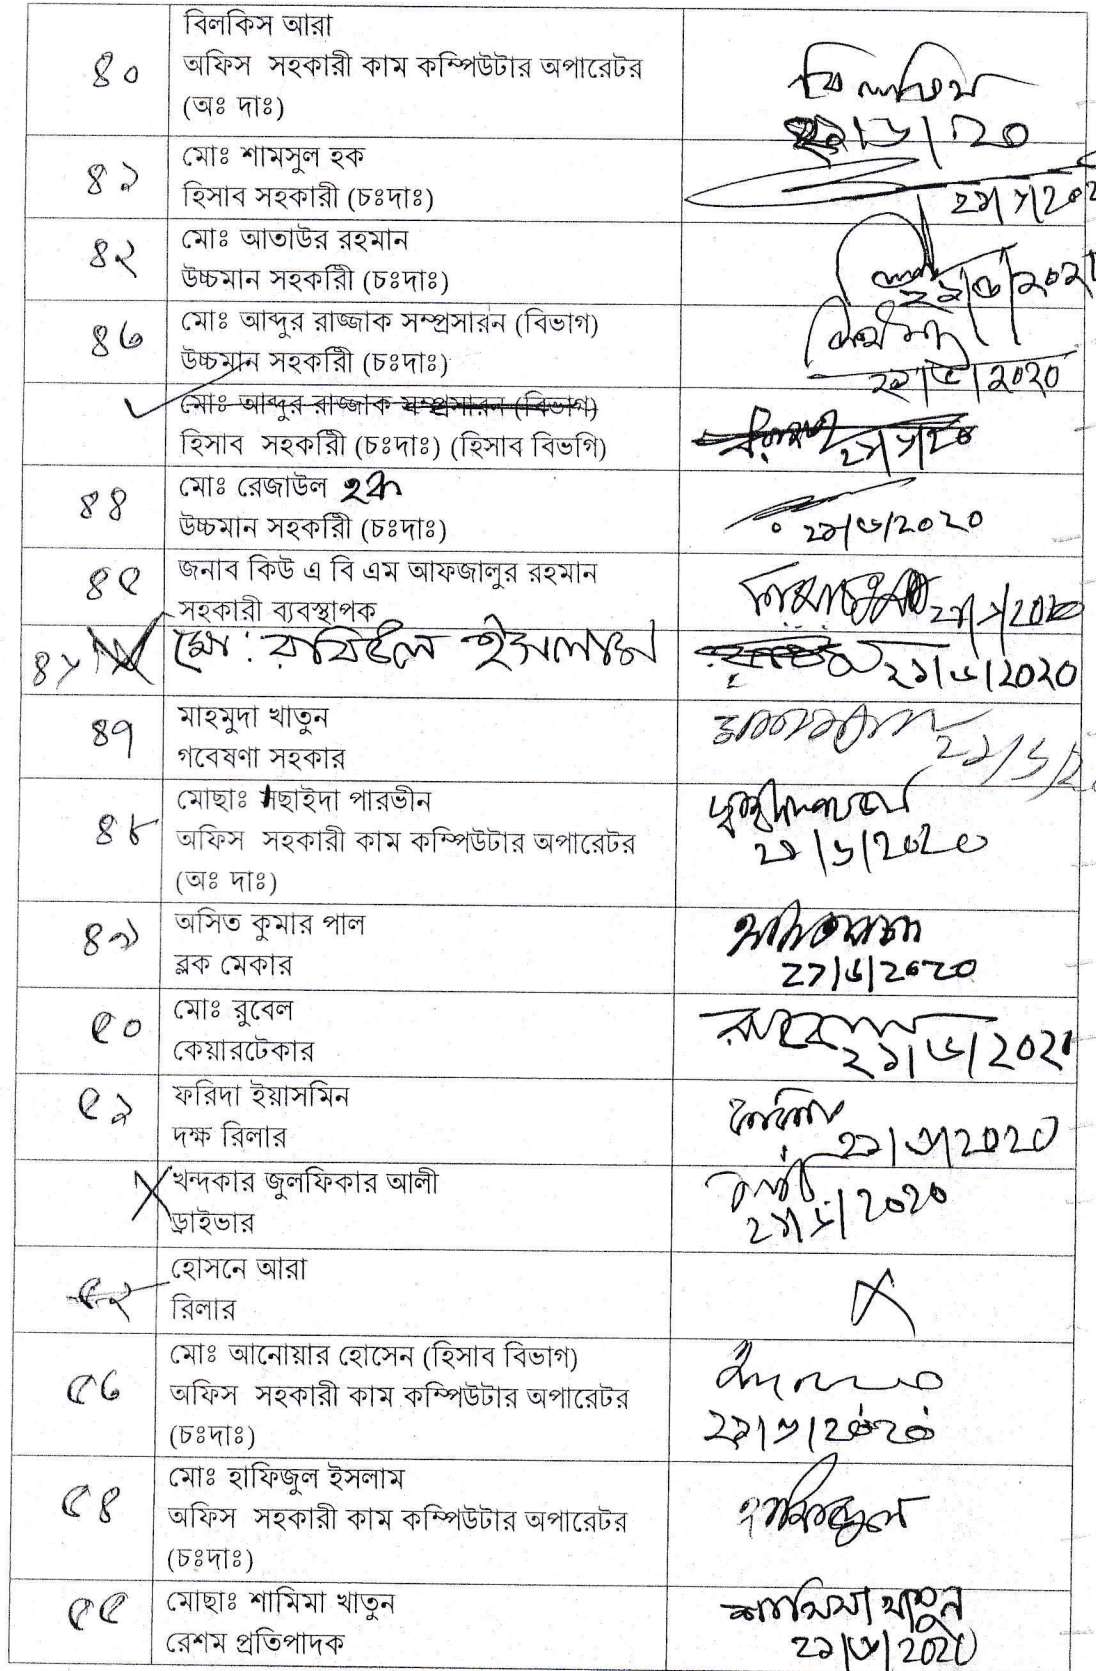 ৪০
বিলকিস আরা
অফিস সহকারী কাম কম্পিউটার অপারেটর
(অঃ দাঃ)
বিলকিস
২১/৬/২০
৪১
মোঃ শামসুল হক
হিসাব সহকারী (চঃদাঃ)
৪২
মোঃ আতাউর রহমান
উচ্চমান সহকারী (চঃদাঃ)
৪৩
মোঃ আব্দুর রাজ্জাক সম্প্রসারন (বিভাগ)
উচ্চমান সহকারী (চঃদাঃ)
২১/৬/২০২০
মোঃ আব্দুর রাজ্জাক সম্প্রসারন (বিভাগ)
হিসাব সহকারী (চঃদাঃ) (হিসাব বিভাগ)
২১/৬/২০
৪৪
মোঃ রেজাউল হক
উচ্চমান সহকারী (চঃদাঃ)
২১/৬/২০২০
৪৫
জনাব কিউ এ বি এম আফজালুর রহমান
সহকারী ব্যবস্থাপক
২১/৬/২০২০
মো: রবিউল ইসলাম
২১/৬/২০২০
৪৭
মাহমুদা খাতুন
গবেষণা সহকার
৪৮
মোছাঃ সছাইদা পারভীন
অফিস সহকারী কাম কম্পিউটার অপারেটর
(অঃ দাঃ)
২১/৬/২০২০
৪৯
অসিত কুমার পাল
ব্লক মেকার
২১/৬/২০২০
৫০
মোঃ রুবেল
কেয়ারটেকার
রুবেল
২১/৬/২০২০
৫১
ফরিদা ইয়াসমিন
দক্ষ রিলার
২১/৬/২০২০
খন্দকার জুলফিকার আলী
ড্রাইভার
২১/৬/২০২০
৫২
হোসনে আরা
রিলার
৫৩
মোঃ আনোয়ার হোসেন (হিসাব বিভাগ)
অফিস সহকারী কাম কম্পিউটার অপারেটর
(চঃদাঃ)
২১/৬/২০২০
৫৪
মোঃ হাফিজুল ইসলাম
অফিস সহকারী কাম কম্পিউটার অপারেটর
(চঃদাঃ)
হাফিজুল
৫৫
মোছাঃ শামিমা খাতুন
রেশম প্রতিপাদক
শামিমা খাতুন
২১/৬/২০২০